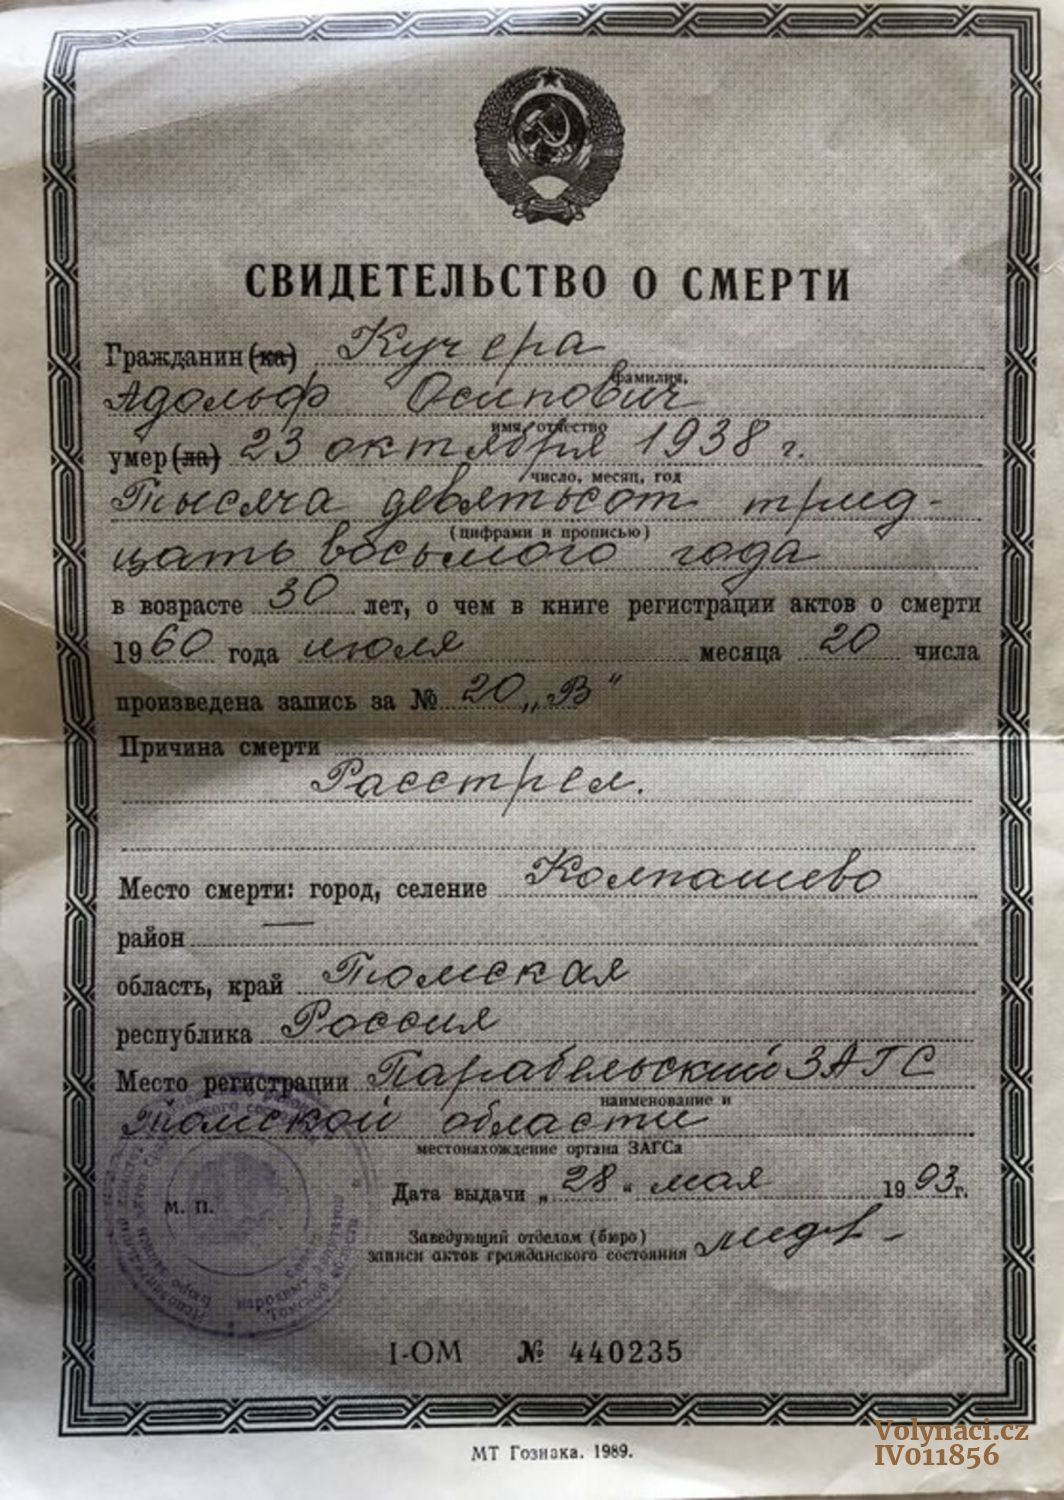 СВИДЕТЕЛЬСТВО О СМЕРТИ
Гражданин (ка) Кучера
фамилия,
Адольф Осипович
имя, отчество
умер (ла) 23 октября 1938 г.
число, месяц, год
Тысяча девятьсот трид-
(цифрами и прописью)
цать восьмого года
в возрасте 30 лет, о чем в книге регистрации актов о смерти
1960 года июля месяца 20 числа
произведена запись за № 20 „В"
Причина смерти
Расстрел.
Место смерти: город, селение Колпашево
район —
область, край Томская
республика Россия
Место регистрации Парабельский ЗАГС
наименование и
Томской области
местонахождение органа ЗАГСа
М. П.
Дата выдачи „28" мая 1993 г.
Заведующий отделом (бюро)
записи актов гражданского состояния
I-ОМ № 440235
МТ Гознака. 1989.
Volynaci.cz
IV011856